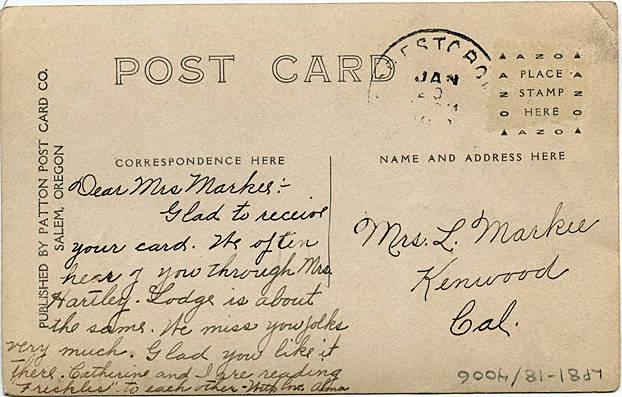 POST CARD
WESTCRO
JAN
20
AZO
PLACE
STAMP
HERE
AZO
PUBLISHED BY PATTON POST CARD CO.
SALEM, OREGON
CORRESPONDENCE HERE
NAME AND ADDRESS HERE
Dear Mrs Markee:-
Glad to receive
your card. We often
hear of you through Mrs.
Hartley. Lodge is about
the same. We miss you folks
very much. Glad you like it
there. Catherine and I are reading
"Freckles" to each other - With love Alma
Mrs. L. Markee
Kenwood
Cal.
LP81-18/4006